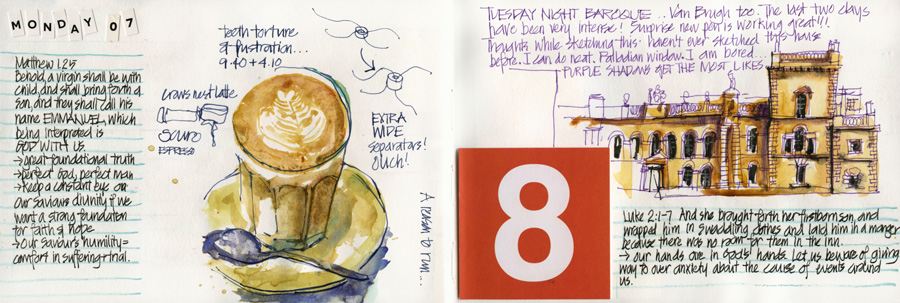 MONDAY 07
Matthew 1:23
behold, a virgin shall be with
child, and shall bring forth a
son, and they shall call his
name EMMANUEL, which
being interpreted is
GOD WITH US.
→ great foundational truth
→ perfect God, perfect man
→ keep a constant eye on
our saviours divinity if we
want a strong foundation
for faith & hope
→ Our saviour's humility =
comfort in suffering + trial.
teeth torture
& frustration...
9.40 + 4.10
crows nest latte
ESPRESSO
EXTRA
WIDE
separators!
Ouch!
A reason to run...
TUESDAY NIGHT BAROQUE .. Van Brugh too. The last two days
have been very intense! Surprise new pen is working great!!!
Thoughts while sketching this. Haven't ever sketched this house
before. I can do neat. Palladian window. I am bored
PURPLE SHADOWS GET THE MOST LIKES
8
Luke 2:1-7 And she brought forth her firstborn son, and
wrapped him in swaddling clothes and laid him in a manger
because there was no room for them in the inn.
→ our hands are in God's hands. Let us beware of giving
way to over anxiety about the cause of events around
us.